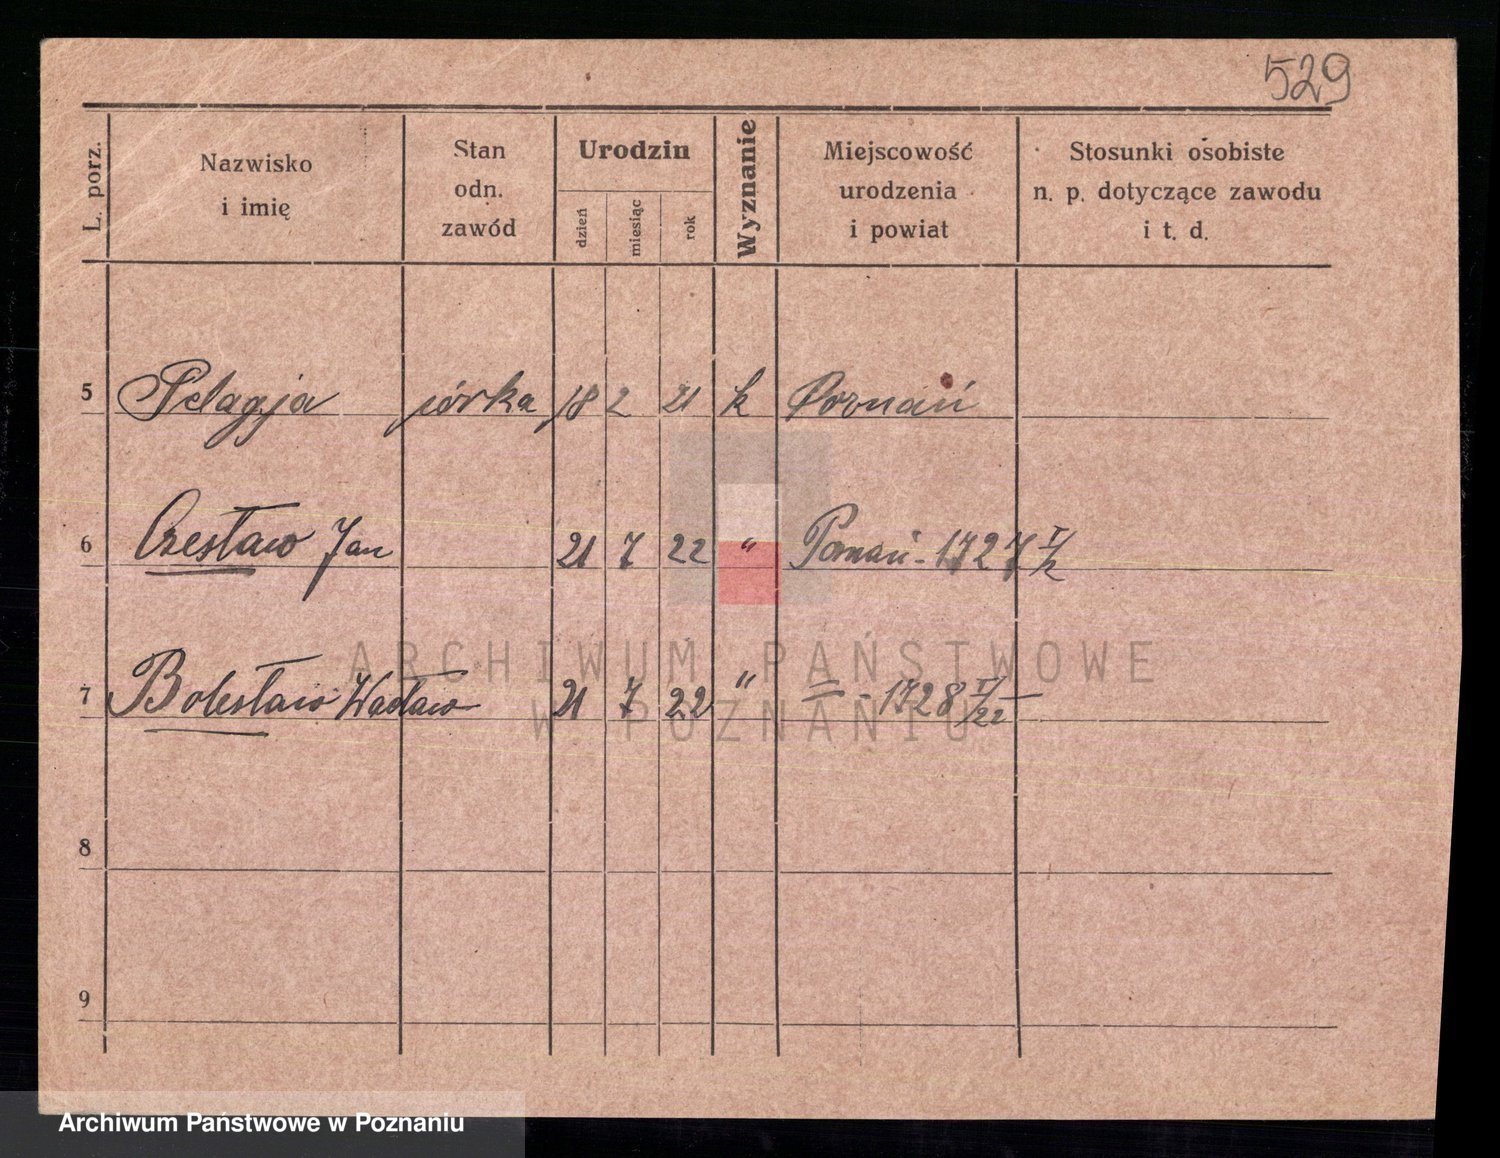 529
L. porz.
Nazwisko
i imię
Stan
odn.
zawód
Urodzin
dzień
miesiąc
rok
Wyznanie
Miejscowość
urodzenia
i powiat
Stosunki osobiste
n. p. dotyczące zawodu
i t. d.
5 Pelagja córka 18 2 21 k Poznań
6 Czesław Jan 21 7 22 " Poznań - 1727 I/2
7 Bolesław Wacław 21 7 22 " = - 1728 I/22 -
8
9
ARCHIWUM PAŃSTWOWE
W POZNANIU
Archiwum Państwowe w Poznaniu